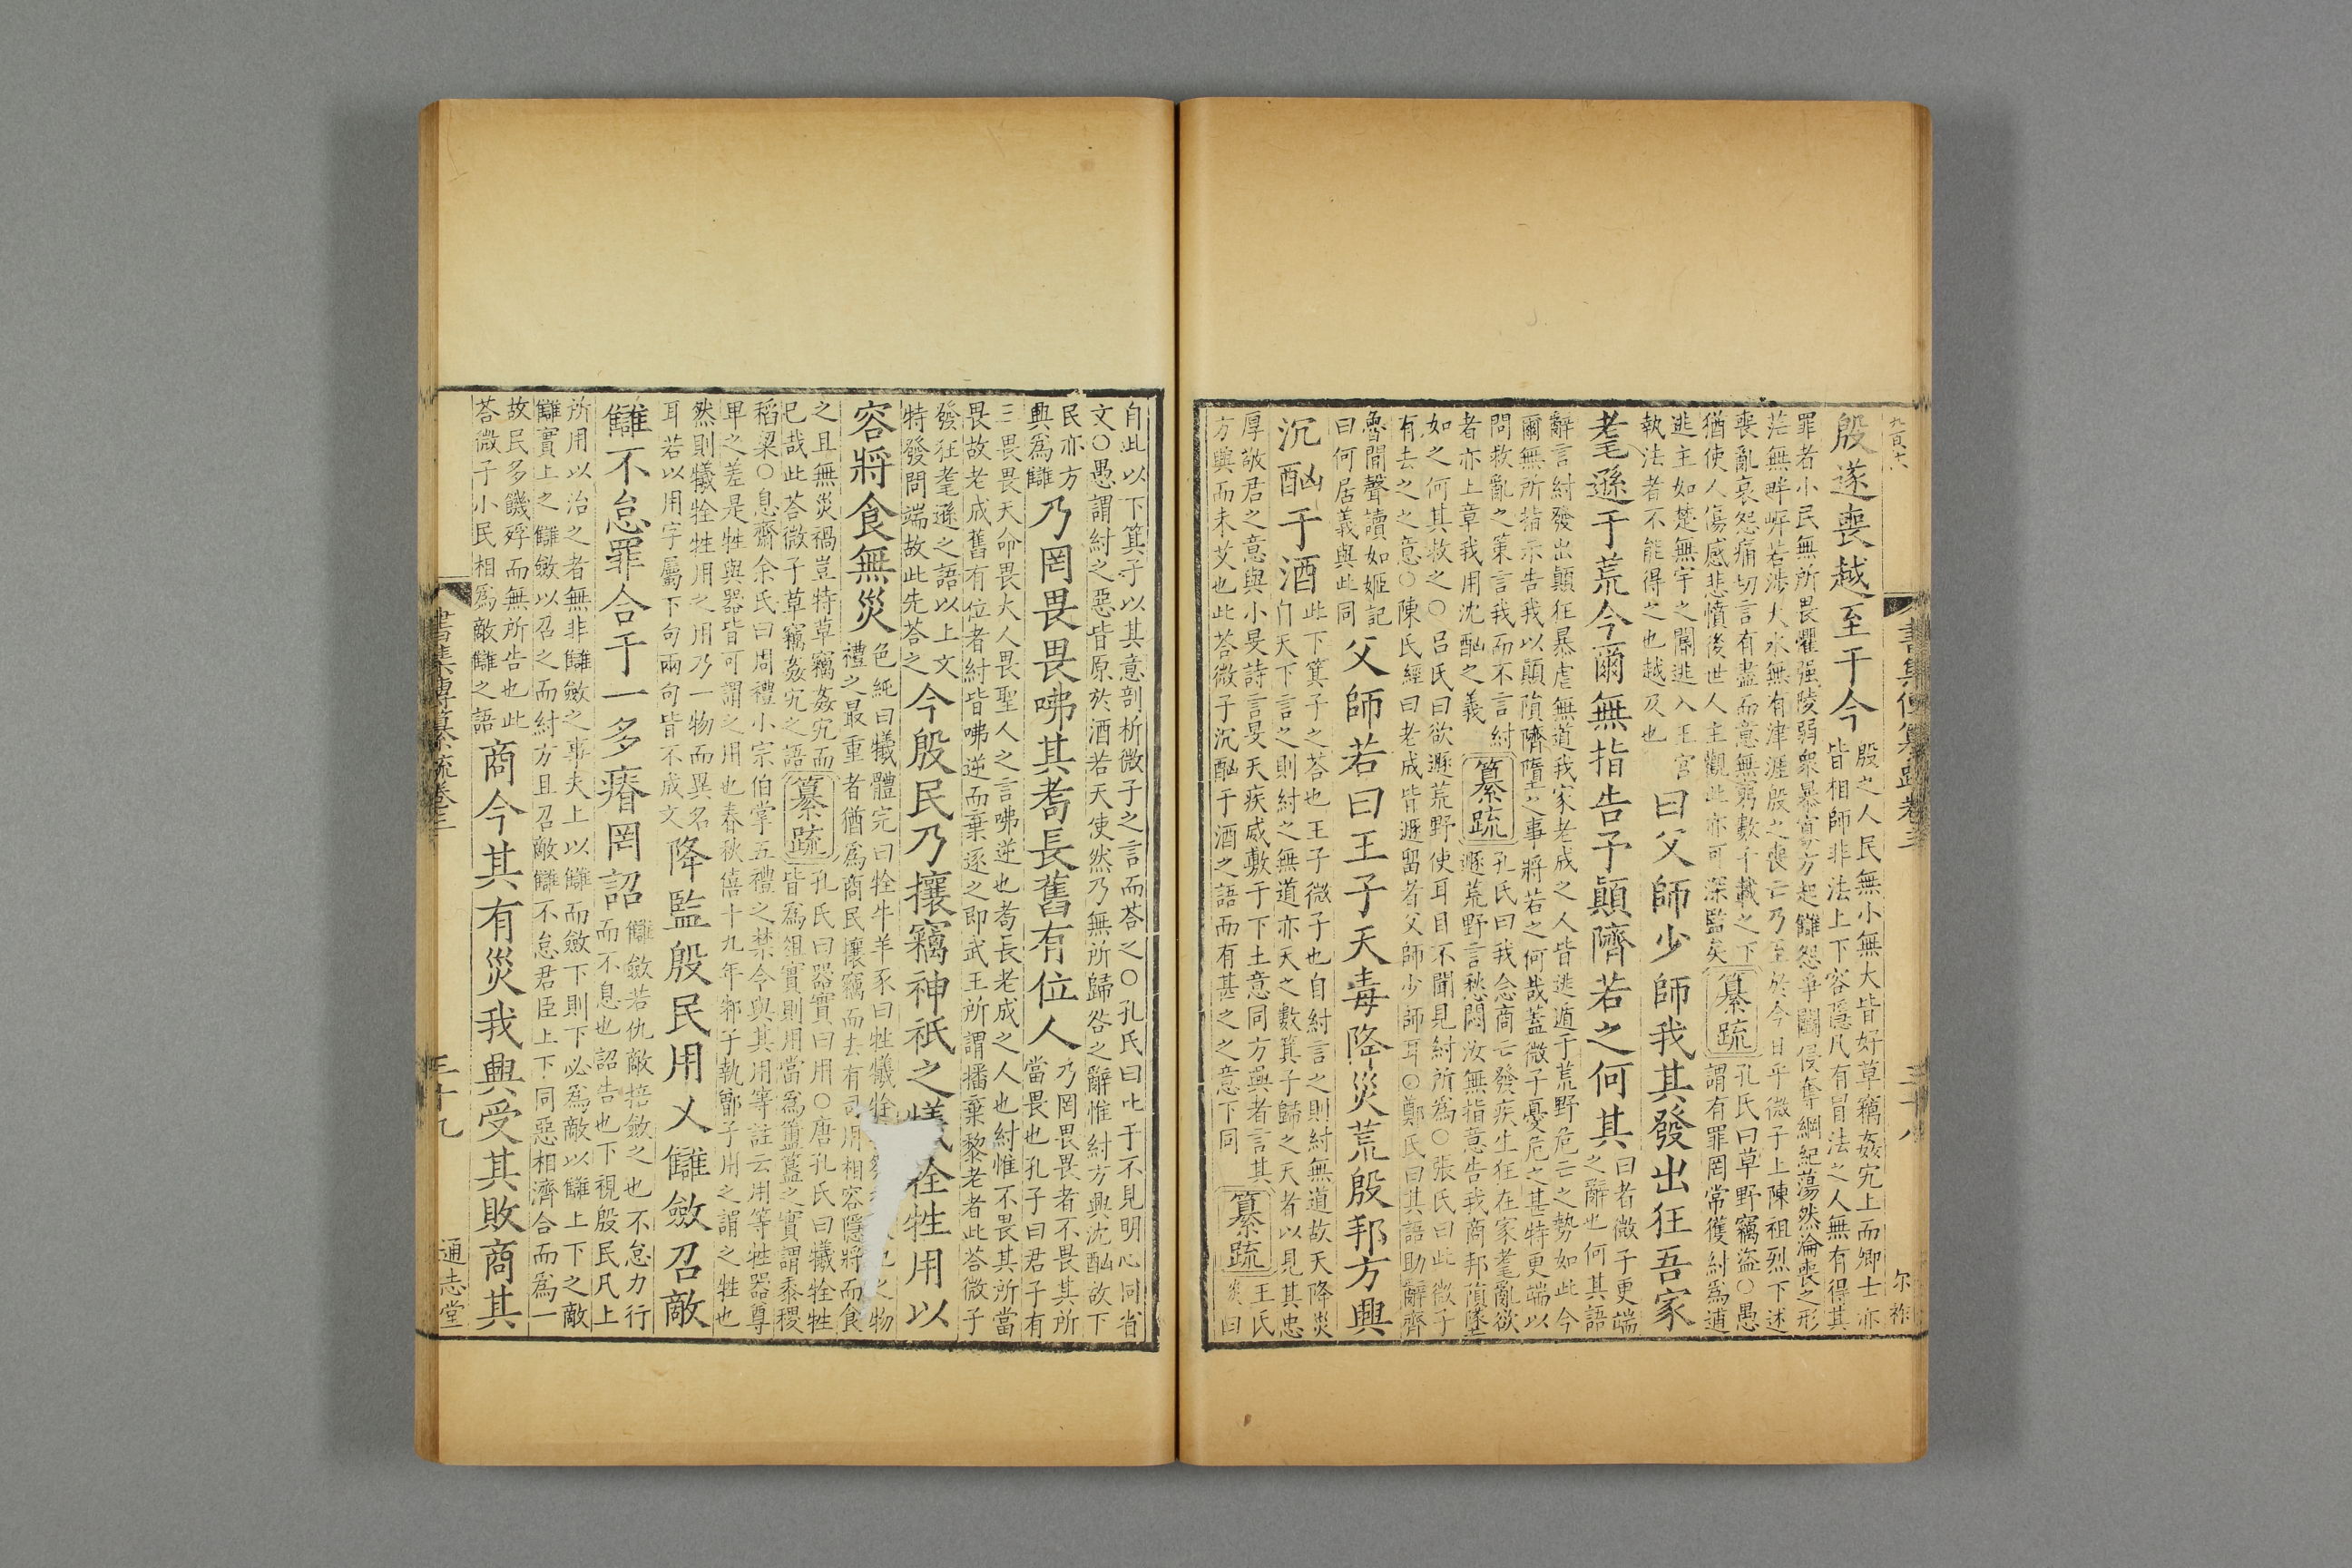 九百六
書集傳纂疏卷三
三十八
尔祚
殷遂喪越至于今
殷之人民無小無大皆好草竊姦宄上而卿士亦
皆相師非法上下容隱凡有冒法之人無有得其
罪者小民無所畏懼强陵弱衆暴寡方起讎怨爭鬬侵奪綱紀蕩然淪喪之形
茫無畔岸若涉大水無有津涯殷之喪亡乃至於今日乎微子上陳祖烈下述
喪亂哀怨痛切言有盡而意無窮數千載之下
猶使人傷感悲憤後世人主觀此亦可深監矣
纂疏
孔氏曰草野竊盜○愚
謂有罪罔常獲紂爲逋
逃主如楚無宇之閽逃入王宮
執法者不能得之也越及也
曰父師少師我其發出狂吾家
耄遜于荒今爾無指告予顛隮若之何其
曰者微子更端
之辭也何其語
辭言紂發出顛狂暴虐無道我家老成之人皆逃遁于荒野危亡之勢如此今
爾無所指示告我以顛隕隮墮之事將若之何哉蓋微子憂危之甚特更端以
問救亂之策言我而不言紂
者亦上章我用沈酗之義
纂疏
孔氏曰我念商亡發疾生狂在家耄亂欲
遯荒野言愁悶汝無指意告我商邦隕墜
如之何其救之○呂氏曰欲遯荒野使耳目不聞見紂所爲○張氏曰此微子
有去之之意○陳氏經曰老成皆遯留者父師少師耳○鄭氏曰其語助辭齊
魯間聲讀如姬記
曰何居義與此同
父師若曰王子天毒降災荒殷邦方興
沉酗于酒
此下箕子之荅也王子微子也自紂言之則紂無道故天降災
自天下言之則紂之無道亦天之數箕子歸之天者以見其忠
厚敬君之意與小旻詩言旻天疾威敷于下土意同方興者言其
方興而未艾也此荅微子沉酗于酒之語而有甚之之意下同
纂疏
王氏
炎曰
自此以下箕子以其意剖析微子之言而荅之○孔氏曰上于不見明心同省
文○愚謂紂之惡皆原於酒若天使然乃無所歸咎之辭惟紂方興沈酗故下
民亦方
興爲讎
乃罔畏畏咈其耇長舊有位人
乃罔畏畏者不畏其所
當畏也孔子曰君子有
三畏畏天命畏大人畏聖人之言咈逆也耇長老成之人也紂惟不畏其所當
畏故老成舊有位者紂皆咈逆而棄逐之即武王所謂播棄黎老者此荅微子
發狂耄遜之語以上文
特發問端故此先荅之
今殷民乃攘竊神祇之犧牷牲用以
容將食無災
色純曰犧體完曰牷牛羊豕曰牲犧牷
禮之最重者猶爲商民攘竊而去有司用相容隱將而食
之且無災禍豈特草竊姦宄而
已哉此荅微子草竊姦宄之語
纂疏
孔氏曰器實曰用○唐孔氏曰犧牷牲
皆爲俎實則用當爲簠簋之實謂黍稷
稻粱○息齋余氏曰周禮小宗伯掌五禮之禁令與其用等註云用等牲器尊
卑之差是牲與器皆可謂之用也春秋僖十九年邾子執鄫子用之謂之牲也
然則犧牷牲用之用乃一物而異名
耳若以用字屬下句兩句皆不成文
降監殷民用乂讎斂召敵
讎不怠罪合于一多瘠罔詔
讎斂若仇敵掊斂之也不怠力行
而不息也詔告也下視殷民凡上
所用以治之者無非讎斂之事夫上以讎而斂下則下必爲敵以讎上下之敵
讎實上之讎斂以召之而紂方且召敵讎不怠君臣上下同惡相濟合而爲一
故民多饑殍而無所告也此
荅微子小民相爲敵讎之語
商今其有災我興受其敗商其
書集傳纂疏卷三
三十九
通志堂